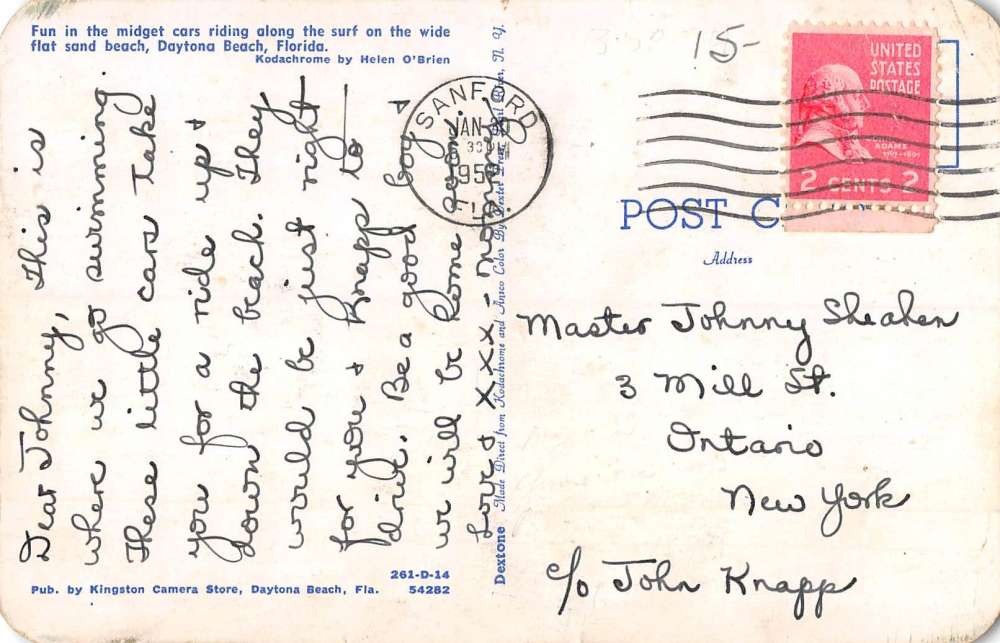 Fun in the midget cars riding along the surf on the wide
flat sand beach, Daytona Beach, Florida.
Kodachrome by Helen O'Brien
Dear Johnny, This is
where we go swimming.
These little cars take
you for a ride up &
down the beach. They
would be just right
for you & Knapp to
drive. Be a good boy &
we will be home soon.
Love & XXX - Mommy
261-D-14
Pub. by Kingston Camera Store, Daytona Beach, Fla. 54282
Dextone Made Direct from Kodachrome and Ansco Color By Dexter Press, Pearl River, N. Y.
15-
SANFORD
JAN
195
FLA.
UNITED
STATES
POSTAGE
ADAMS
2 CENTS 2
POST C
Address
Master Johnny Sheahen
3 Mill St.
Ontario
New York
c/o John Knapp